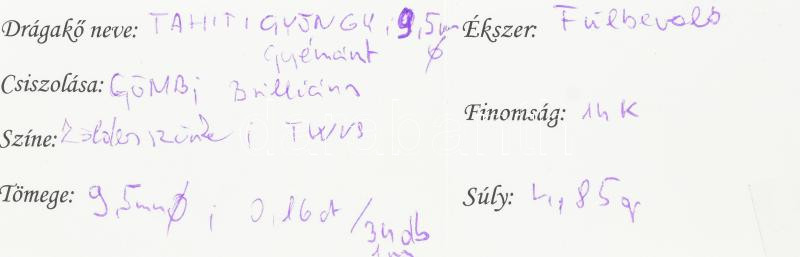 Drágakő neve: TAHITI GYÖNGY; 9,5mm ∅
Gyémánt
Ékszer: Fülbevaló
Csiszolása: GÖMB; Brilliáns
Finomság: 14K
Színe: Zöldesszürke ; TW/VS
Tömege: 9,5mm∅ ; 0,16ct /34db
1mm
Súly: 4,85g